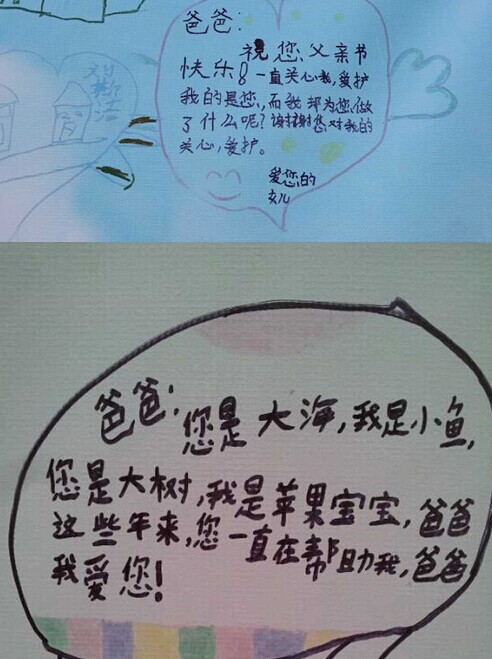 爸爸：
祝您父亲节
快乐！一直关心我，爱护
我的是您，而我却为您做
了什么呢？谢谢您对我的
关心，爱护。
爱您的
女儿
爸爸：您是大海，我是小鱼，
您是大树，我是苹果宝宝，爸爸
这些年来，您一直在帮助我，爸爸
我爱您！